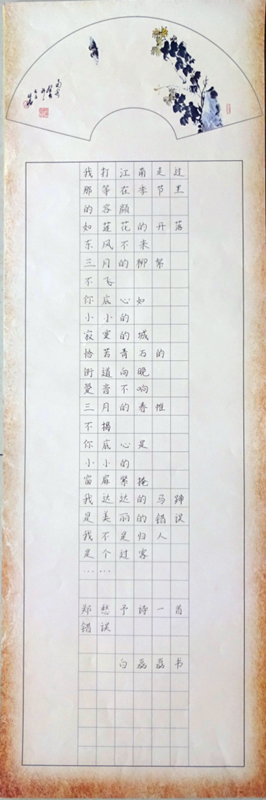 我打江南走过
那等在季节里
的容颜
如莲花的开落
东风不来
三月的柳絮
不飞
你底心如
小小的
寂寞的城
恰若青石的
街道向晚
跫音不响
三月的春帷
不揭
你底心是
小小的
窗扉紧掩
我达达的马蹄
是美丽的错误
我不是归人
是个过客
……
郑愁予诗一首
错误
白磊磊书